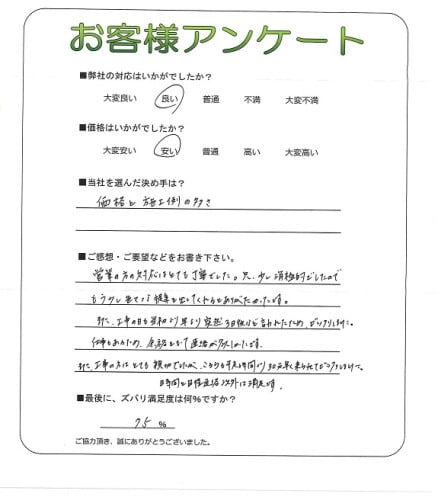 お客様アンケート
■弊社の対応はいかがでしたか？
大変良い 良い 普通 不満 大変不満
■価格はいかがでしたか？
大変安い 安い 普通 高い 大変高い
■当社を選んだ決め手は？
価格と施工例の多さ
■ご感想・ご要望などをお書き下さい。
営業の方の対応はとても丁寧でした。只、少し消極的でしたので
もう少し 提案を出してくれるとありがたかったです。
また、工事の日も 突然3日後と言われたため、ビックリしました。
仕事もあるため、余裕をもって連絡が欲しかったです。
また、工事の方は とても親切でしたが、 時間より30分早く来られて
時間と日程連絡以外は満足です。
■最後に、ズバリ満足度は何%ですか？
75 %
ご協力頂き、誠にありがとうございました。